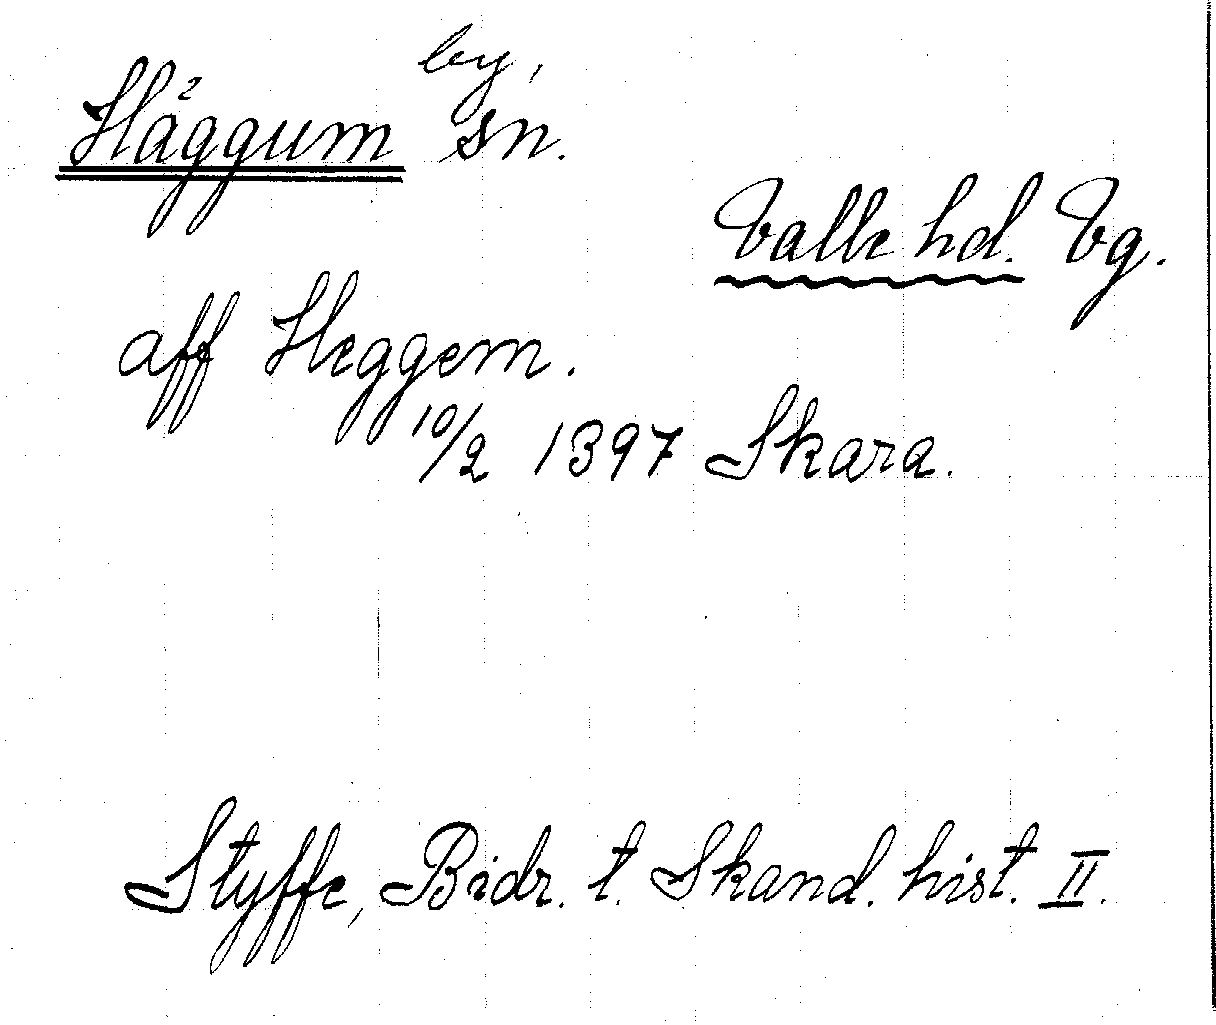 by,
Häggum sn.
Valle hd. Vg.
aff Heggem.
10/2 1397 Skara.
Styffe, Bidr. t. Skand. hist. II.